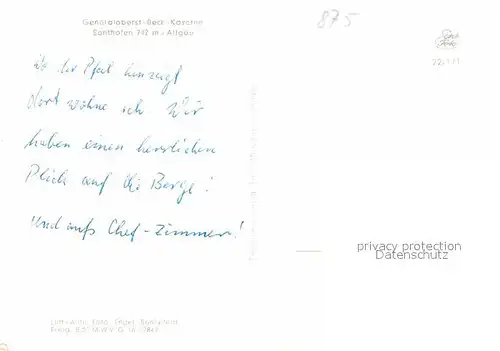 Generaloberst-Beck-Kaserne
Sonthofen 742 m - Allgäu
875
22/171
Wo der Pfeil hinzeigt
dort wohne ich. Wir
haben einen herrlichen
Blick auf die Berge!
Und aufs Chef-Zimmer!
privacy protection
Datenschutz